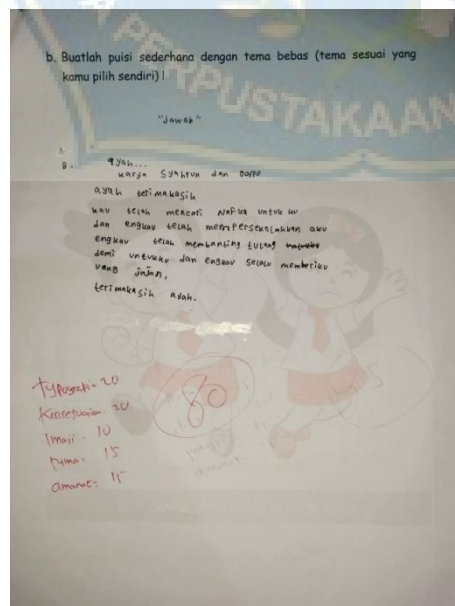 PERPUSTAKAAN
b. Buatlah puisi sederhana dengan tema bebas (tema sesuai yang
kamu pilih sendiri) !
"Jawab"
B.
ayah...
karya Syahrun dan Daffa
ayah terimakasih
kau telah mencari Nafka untuk ku
dan engkau telah mempersekolahkan aku
engkau telah membanting tulang
demi untukku dan engkau selalu memberiku
uang jajan,
terimakasih ayah.
80
Typografi = 20
Kesesuaian - 20
Imaji - 10
rima - 15
amanat = 15